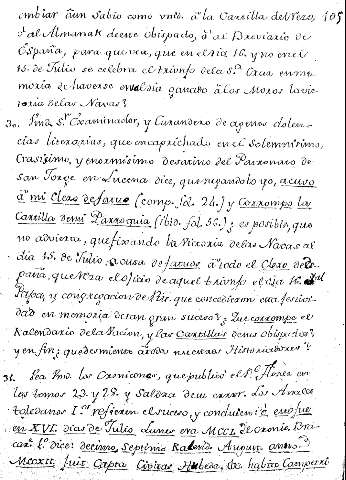 105
embiar á un Sabio como vmd. á la Cartilla del Rezo,
ó al Almanak de este obispado, ó al Breviario de
España, para que vea, que en el dia 16. y no en el
15. de Julio se celebra el triunfo de la Sta. Cruz en me
moria de haverse en el dia ganado á los Moros la vic
toria de las Navas?
30. Vmd. Sr. Examinador, y Curandero de agenos dolen
cias literarias, que encaprichado en el Solemnisimo,
Crasisimo, y enormisimo desatino del Patronato de
San Jorge en Lucena dice, que negandolo yo, acuso
á mi Clero de (comp. fol. 24.) y Corrompo la
Cartilla de mi Parroquia (ibid. fol. 56.) ¿es posible, que
no advierta, que fixando la Victoria de las Navas al
dia 15. de Julio, acusa de á todo el Clero de Es
paña, que reza el oficio de aquel triunfo el dia 16. al
Papa, y congregacion de Rit. que concedieron esa festivi
dad en memoria de tan gran suceso? ¿Que corrompe el
Kalendario de la Nacion, y las Cartillas de sus obispados?
y en fin, que desmiente á todos nuestros Historiadores?
31. Lea Vmd. los Cronicones, que publicó el P. Florez en
los tomos 23. y 28. y Saldra de su error. Los Anales
toledanos 1os. refieren el suceso, y concluien: é esto fue
en XVI. dias de Julio, Lunes era MCCL. el cronico Bur
gens. lo dice: decimo, septimo Kalend. August. anno
MCCXII. fuit Capta Civitas Hubeda, habito Campestri